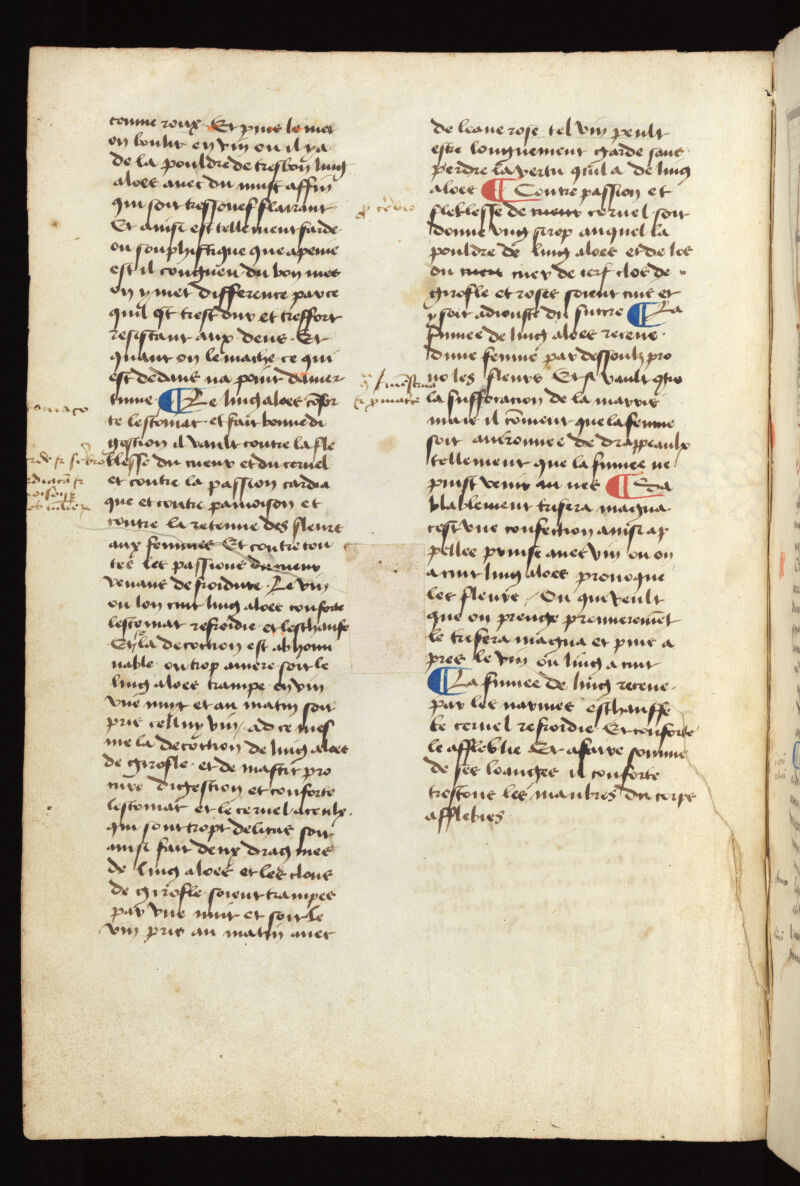 comme roux. Et puis le met
on boulir en vin ou il y a
de la pouldre de tresbon ling
aloes avec du must affin
qui soit tressouef flairant
Et ainsi est tellement farde
ou souphistique que a peine
est il congneu du bon mes
on y met difference parce
quil est tresdur et tresfort
resistant aux dens. Et
quant on le mache ce qui
est dedans na point damer
tume. Le lingaloes cōfor
te lestomac et fait bonne di
gestion il vault contre la fle
blesse du cueur et du cervel
et contre la passion cardia
que et contre pamoison et
contre la retenue des fleurs
aux femmes Et contre tou
tes les passions du cueur
venans de froidure. Le vin
ou lon cuit ling aloes conforte
lestomac refroidie et leschaufe
Et se la decoction est abhomi
nable ou trop amere soit le
ling aloes trampe en vin
une nuit et au matin soit
pris celluy vin. Ad ce mes
me la decoction de ling aloes
de girofle. et de mastic pro
cure digestion et conforte
lestomac et le cervel. a ceulx.
qui sont tropt delicas soit
ainsi fait deux dragmes
de ling aloes et les clous
de girofle soient trampes
par une nuit et soit le
vin pris au matin avec
de leaue rose tel vin peult
estre longuement garde sans
perdre la vertu quil a de ling
aloes Contre passion et
fleblesse de cueur cervel soit
donne ung sirop auquel la
pouldre de ling aloes et de los
du cueur cuer de cerf clos de
girofle et roses soient cuis et
y soit adiouste du succre La
fumee de ling aloes receue.
dune femme par dessoulz pro
uo les fleurs Et si vault cōtre
la suffocation de la marris
mais il cōvient que la femme
soit avironnee de drappeaulx
tellement que la fumee ne
puist venir au nes Sa
blablement trifera magna
cest une confection ainsi ap
pellee prinse avec vin ou on
a cuit ling aloes provoque
les fleurs / Ou que veult
que on prenge premieremēt
le trifera magna et puis a
pres le vin ou ling a cuit
La fumee de ling receue.
par les narines eschauffe
le cervel refroidie Et conforte
le affleblie Et a faire somme
de ses loanges il conforte
trestous les membres du corps
afflebies